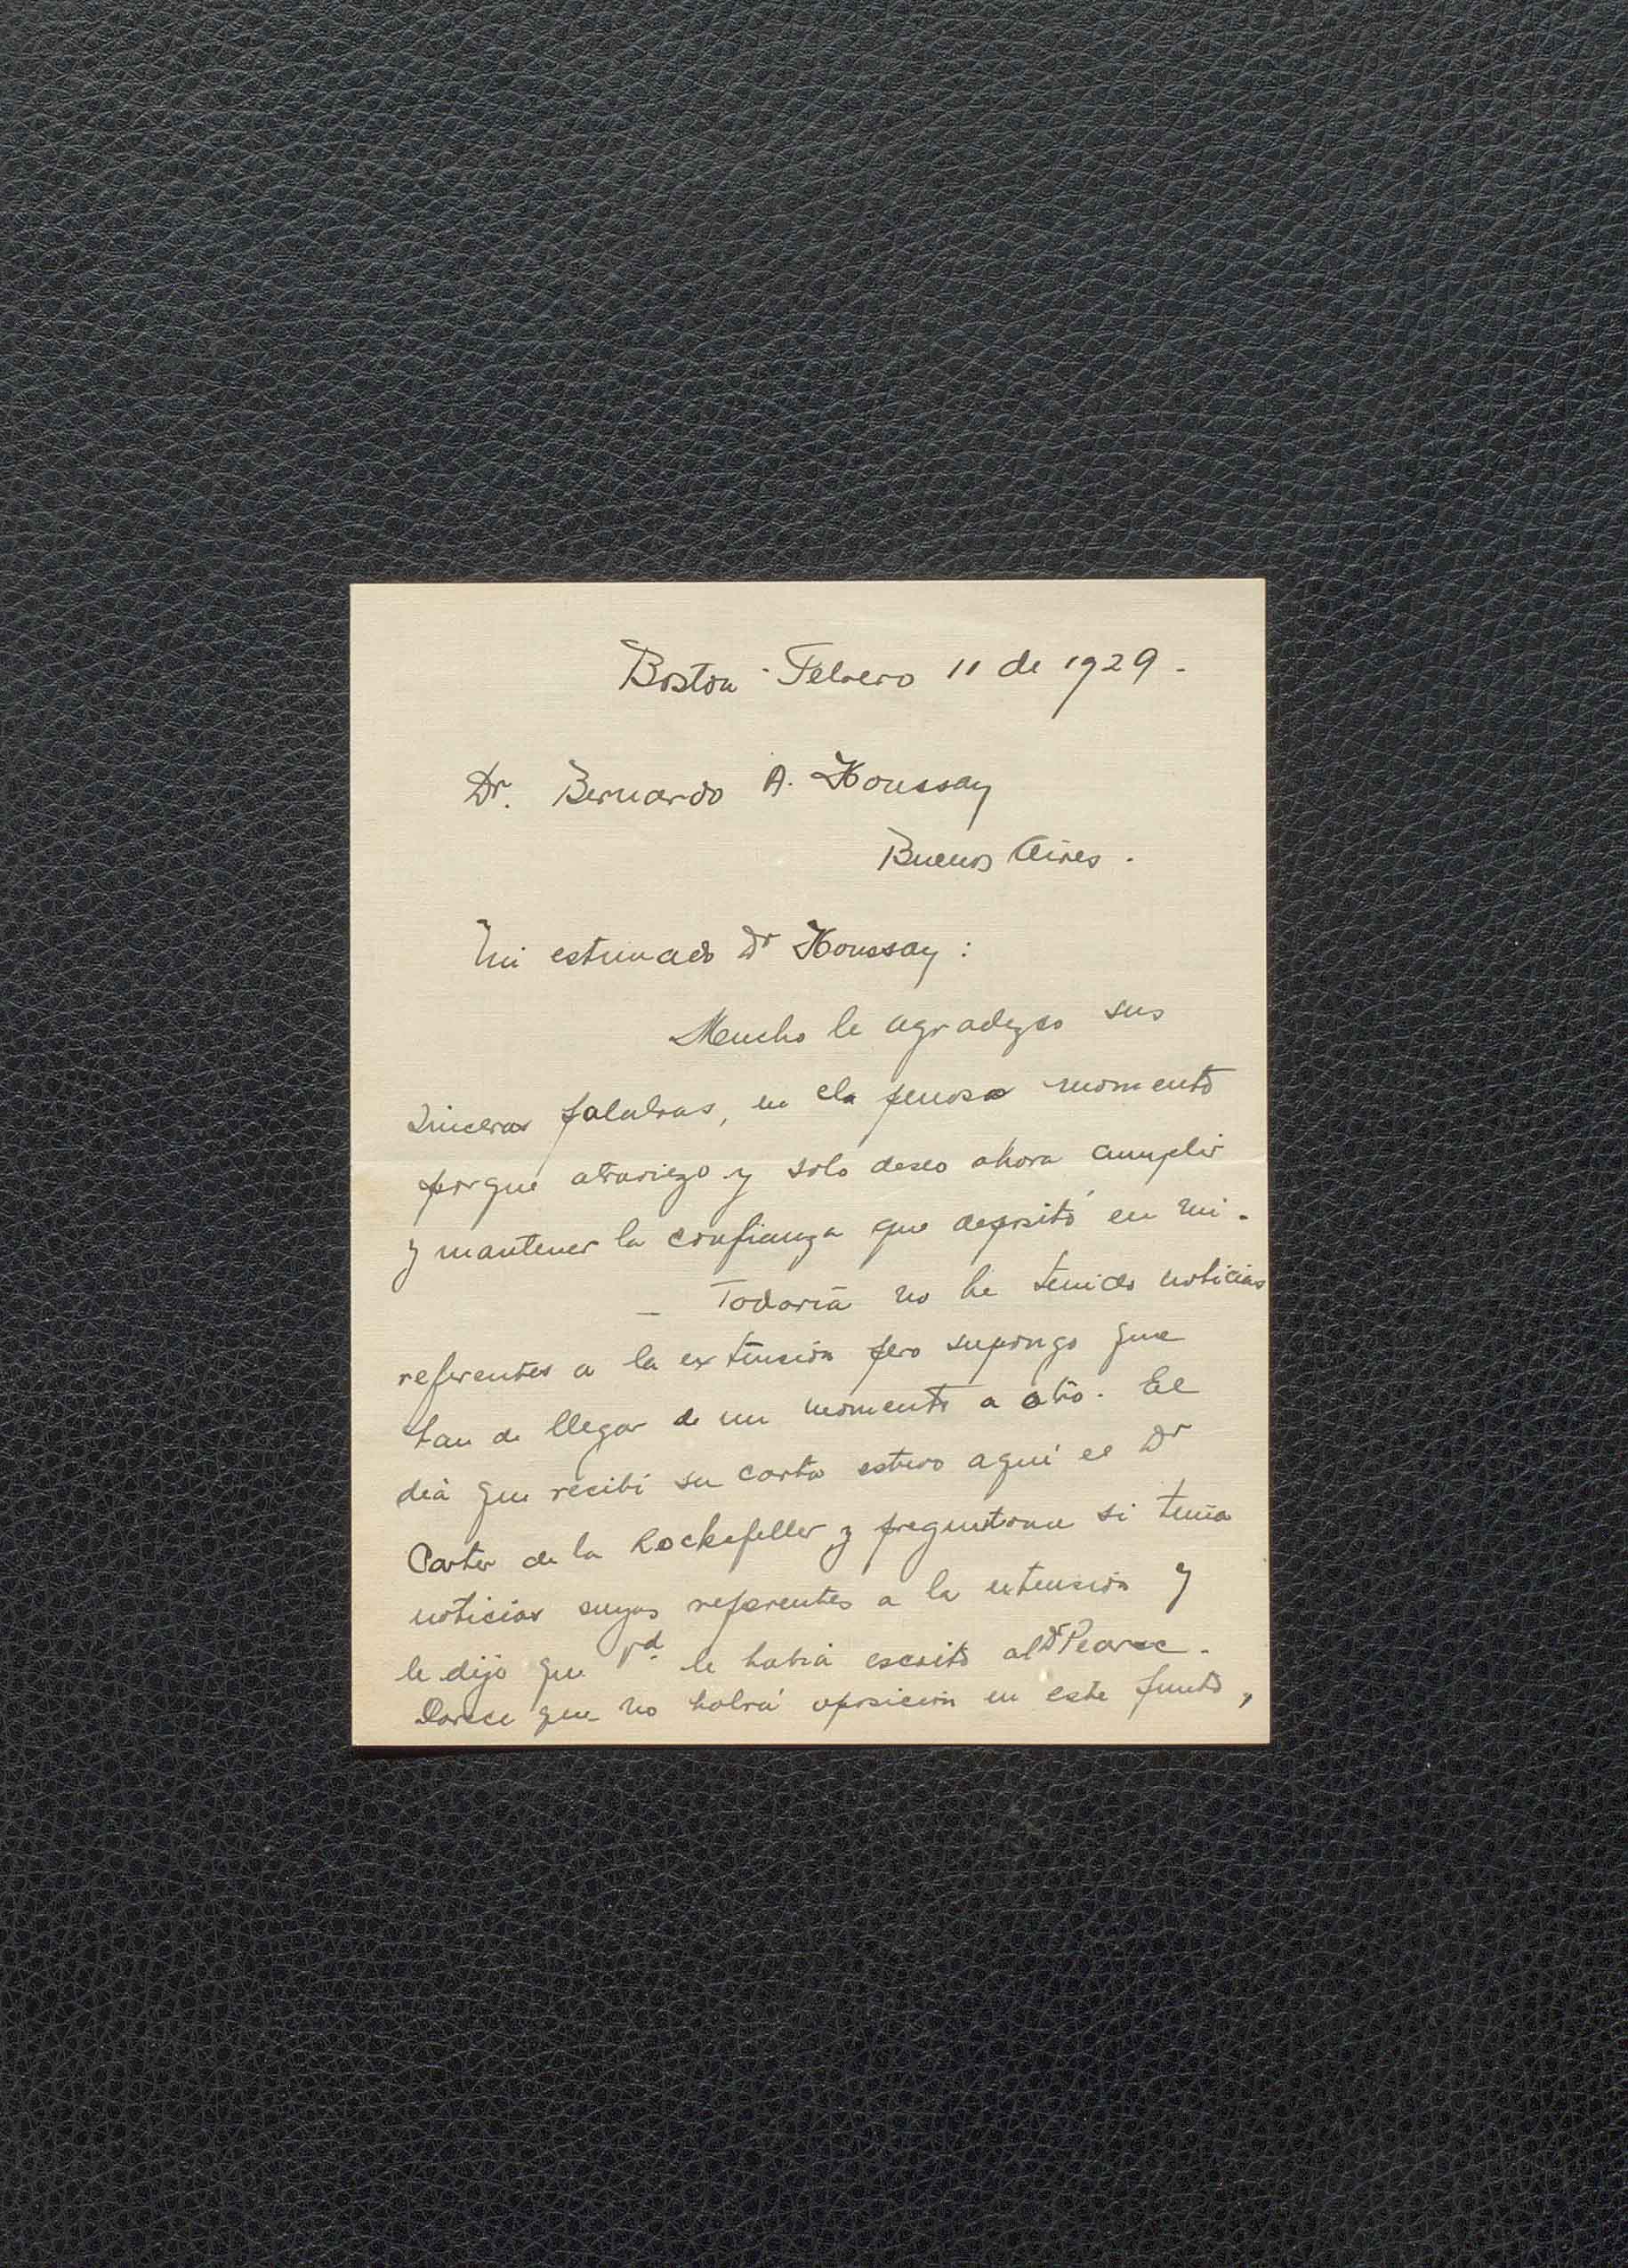 Boston - Febrero 11 de 1929 -
Dr. Bernardo A. Houssay
Buenos Aires .
Mi estimado Dr Houssay :
Mucho le agradezco sus
sinceras palabras, en el penoso momento
porque atraviezo y solo deseo ahora cumplir
y mantener la confianza que depositó en mi .
_ Todavía no he tenido noticias
referentes a la extensión pero supongo que
han de llegar de un momento a otro. El
día que recibí su carta estuvo aquí el Dr
Carter de la Rockefeller y si tenía
noticias suyas referentes a la extensión y
le dijo que Vd. le había escrito al Dr Pearce .
Parece que no habrá oposición en este punto ,